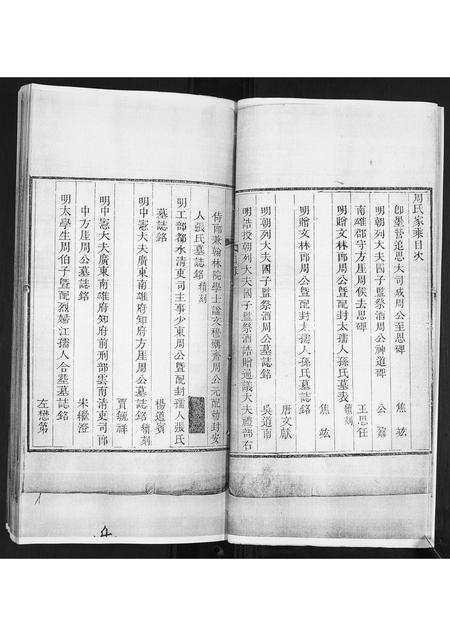 周氏家乘目次
即墨營追思大司成周公至思碑 焦竑
明朝列大夫國子監祭酒周公神道碑 公鼐
南雄郡守方厓周侯去思碑 王思任
明贈文林郎周公暨配封太孺人孫氏墓表 續刻
明贈文林郎周公暨配封太孺人孫氏墓誌銘 焦竑
唐文獻
明朝列大夫國子監祭酒周公墓誌銘 吳道南
明誥授朝列大夫國子監祭酒誥贈通議大夫禮部右
侍郎兼翰林院學士諡文穆礪齋周公元配勅封安
人張氏墓誌銘 續刻
明工部都水清吏司主事少東周公暨配封孺人張氏
墓誌銘 楊道賓
明中憲大夫廣東南雄府知府方厓周公墓誌銘 續刻
賈毓祥
明中憲大夫廣東南雄府知府前刑部雲南清吏司郎
中方厓周公墓誌銘 朱繼澄
明太學生周伯子暨配烈婦江孺人合葬墓誌銘
左懋第